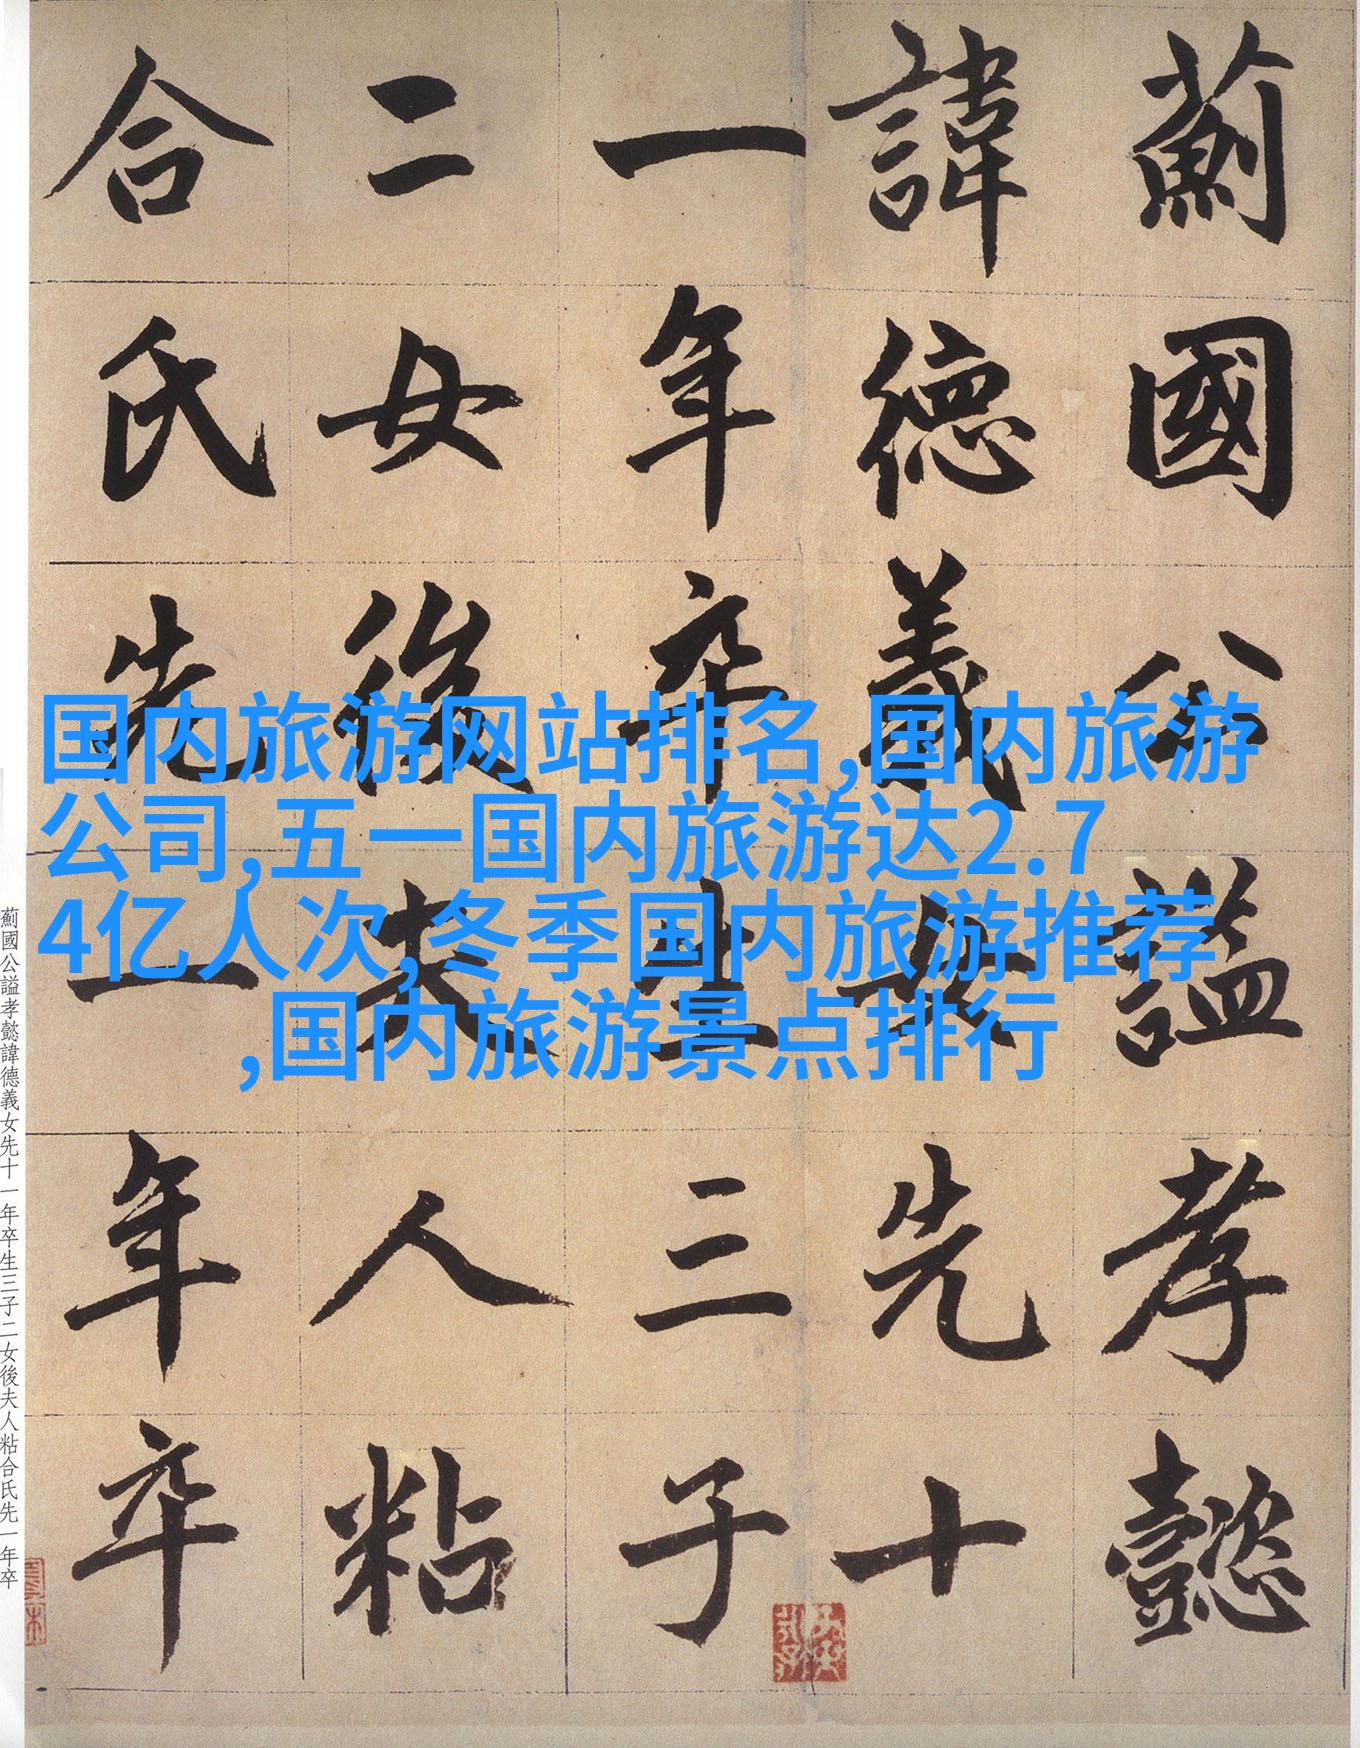 薊國公謚孝懿
諱德義女先十
一年卒生三子
二女後夫人粘
合氏先一年卒
薊國公謚孝懿諱德義女先十一年卒生三子二女後夫人粘合氏先一年卒
国内旅游网站排名,国内旅游
公司,五一国内旅游达2.7
4亿人次,冬季国内旅游推荐
,国内旅游景点排行